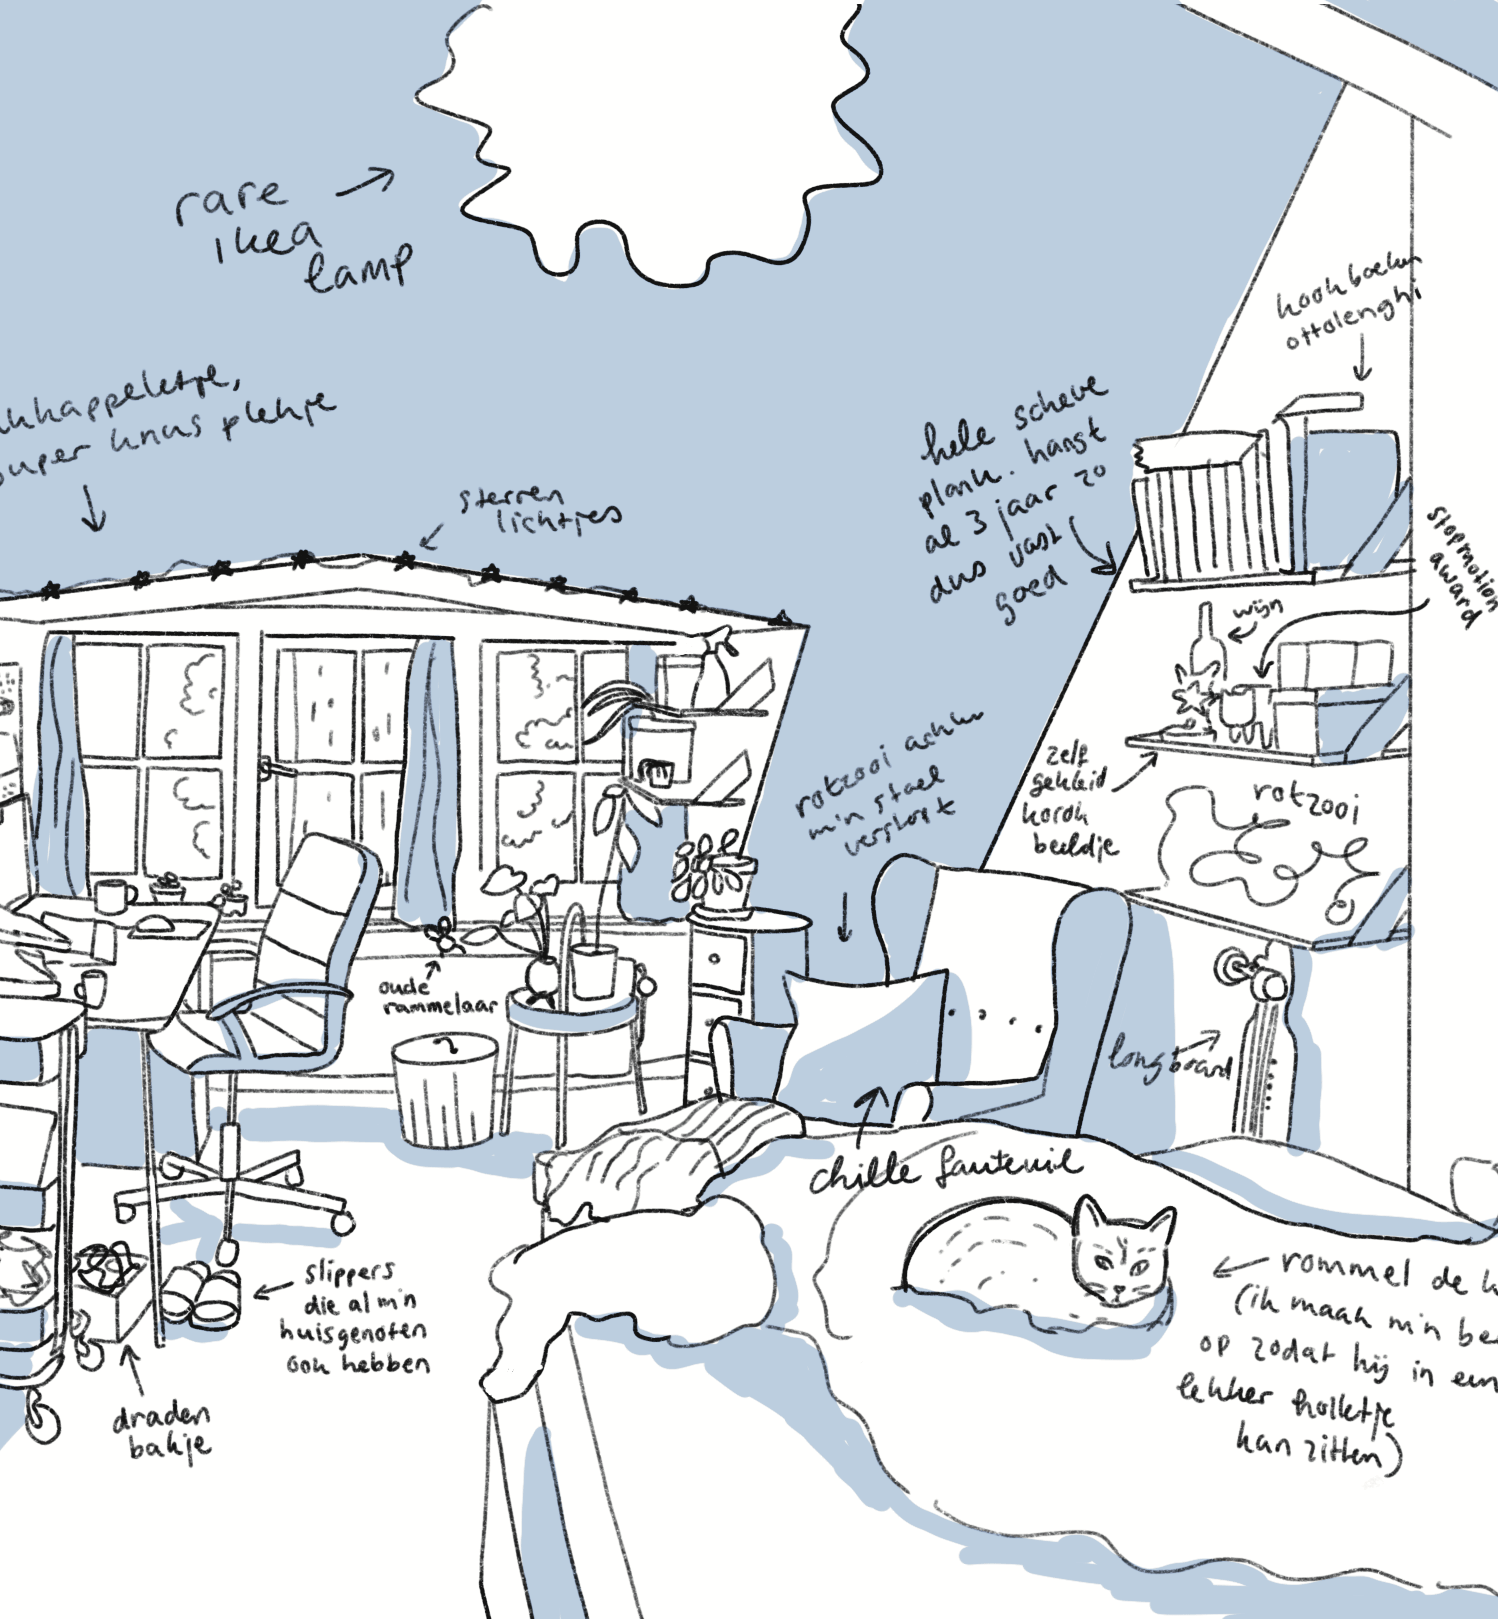 rare
ikea
lamp
kookboeken
ottolenghi
super knus plekje
sterren
lichtjes
hele scheve
plank. hangt
al 3 jaar zo
dus vast
goed
stopmotion
award
wijn
zelf
gekleid
korok
beeldje
rotzooi
rotzooi achter
m'n stoel
verstopt
oude
rammelaar
longboard
chille fauteuil
slippers
die al m'n
huisgenoten
ook hebben
draden
bakje
rommel de
(ik maak m'n
op zodat hij in een
lekker holletje
kan zitten)